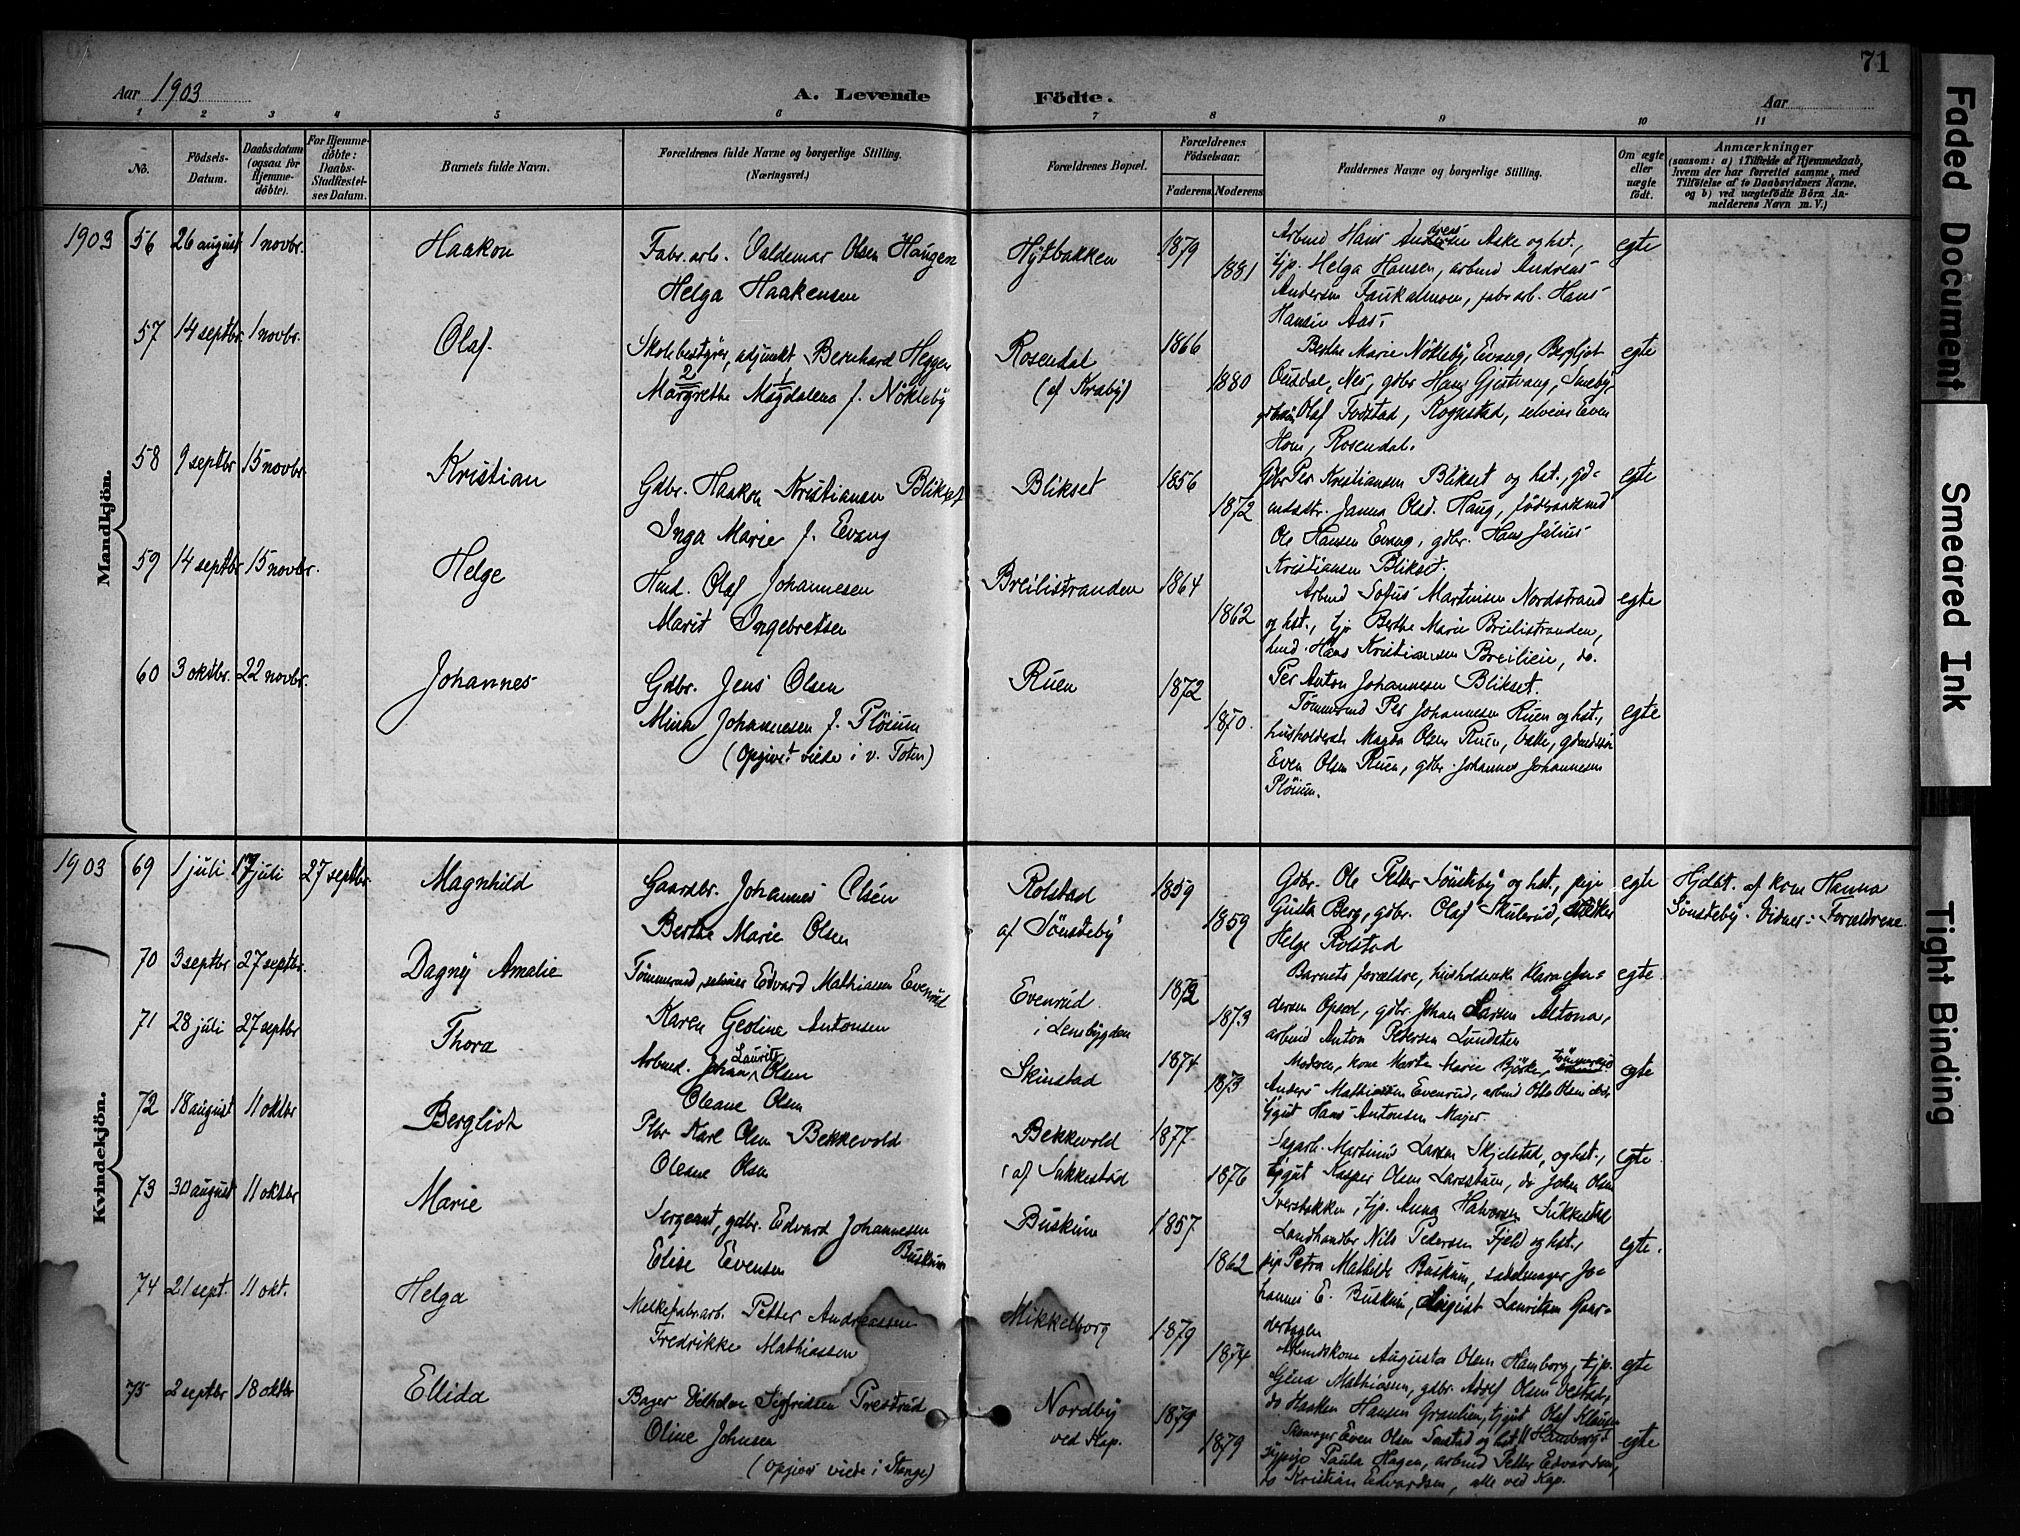 71
Aar 1903
A. Levende Födte.
Aar
1 2 3 4 5 6 7 8 9 10 11
No.
Födsels-Datum.
Daabsdatum (ogsaa for Hjemme-döbte).
For Hjemme-döbte: Daabs-Stadfæstel-ses Datum.
Barnets fulde Navn.
Forældrenes fulde Navne og borgerlige Stilling. (Næringsvei.)
Forældrenes Bopæl.
Forældrenes Födselsaar.
Faderens. Moderens.
Faddernes Navne og borgerlige Stilling.
Om ægte eller uægte født.
Anmærkninger
(saasom: a) i Tilfælde af Hjemmedaab, hvem der har forrettet samme, med Tilføielse af to Daabsvidners Navne, og b) ved uægtefødte Börn An-melderens Navn m. V.)
Mandkjön.
1903 56 26 august 1 novbr. Haakon
Fabr. arb. Valdemar Olsen Haugen
Helga Haakensen
Hytbakken 1879 1881
Arbmd Hans Aske og hst.,
tjp. Helga Hansen, arbmd Andreas
Andersen, fabr arb. Hans
Hansen Aas.
egte
57 14 septbr. 1 novbr. Olaf
Skolebestyrer, adjunkt Bernhard Heggen
Margrethe Magdalena f. Nökleby
Rosendal
(af Kraby)
1866 1880
Berthe Marie Nökleby, Evang, Bergljot
Nes, gdbr Hans Gjestvang, Smeby,
Olaf Fodstad, Rognstad, Even
Horn, Rosendal.
egte
58 9 septbr 15 novbr. Kristian
Gdbr. Haakon Kristiansen Blikset
Inga Marie f. Evang
Blikset 1856 1872
Gdbr Per Kristiansen Blikset og hst., gd-
Janna Olsd. Haug, föderaadsmd
Ole Hansen Evang, gdbr. Hans Julius
Kristiansen Blikset.
egte
59 14 septbr 15 novbr. Helge
Hmd. Olaf Johannesen
Marit Ingebretsen
Breilistranden 1864 1862
Arbmd Sofus Martinsen Nordstrand
og hst., tjp Berthe Marie Breilistranden,
hmd. Hans Kristiansen Breilieie, do.
Per Anton Johannesen Blikset.
egte
60 3 oktbr. 22 novbr. Johannes
Gdbr. Jens Olsen
Mina Johannesen f. Plöium
(opgivet viede i v. Toten)
Ruen 1872 1870.
Tömmermd Per Johannesen Ruen og hst.,
husholderske Magda Olsen Ruen,
Even Olsen Ruen, gdbr. Johannes Johannesen
Plöium.
egte
Kvindekjön.
1903 69 1 juli 17 juli 27 septbr. Magnhild
Gaardbr. Johannes Olsen
Berthe Marie Olsen
Rolstad
af Sönsteby
1859 1859
Gdbr. Ole Petter Sönsteby og hst., pige
Gusta Berg, gdbr. Olaf Skulerud,
Helge Rolstad
egte
Hjdbt. af kone Hanna
Sönsteby. Vidner: Forældrene.
70 3 septbr 27 septbr. Dagny Amalie
Tömmermd, selveier Edvard Mathiasen Evenrud
Karen Geoline Antonsen
Evenrud
i Lensbygden
1872 1873
Barnets forældre, husholderske Klara An-
dersen Opsed, gdbr. Johan Larsen Altona,
arbmd Anton Pedersen Lundsten
egte
71 28 juli 27 septbr Thora
Arbmd. Johan Laurits Olsen
Oleane Olsen
Skinstad 1874 1873
Moderen, kone Marte Marie Björke,
Anders Mathiassen Evenrud, arbmd Otto Olsen
tjgut Hans Antonsen Majer
egte
72 18 august 11 oktbr Bergliot
Pbr Karl Olsen Bekkevold
Oleane Olsen
Bekkevold
af Sukkestad
1877 1876
Sagarb. Martinius Larsen Skjelstad, og hst.,
tjgut Kasper Olsen, do Johan Olsen
Iversbakken, tjp. Anna Halvorsen Sukkestad
egte
73 30 august 11 oktbr Marie
Sergeant, gdbr. Edvard Johannesen Buskum
Elise Evensen
Buskum 1857 1862
Landhandler Nils Pedersen Fjeld og hst.,
pig Petra Mathilde Buskum, sadelmager Jo-
hannes E. Buskum, August Lauritsen Gaar-
derhagen
egte.
74 21 sept. 11 okt. Helga
Melkefabr.arb. Petter Andreassen
Fredrikke Mathiassen
Mikkelborg 1879 1874
Augusta Olsen Hamborg, tjp.
Gina Mathiasen, gdbr. Adolf Olsen
do Haaken Hansen Granlien, tjgut. Olaf
Hamborg
egte
75 2 septbr 18 oktbr Ellida
Bager Vilhelm Sigfridsen Prestrud
Oline Johnsen
(opgiver viede i Stange)
Nordby
ved Kap.
1879 1879
Skomager Even Olsen og hst.
Paula Hagen, arbmd Petter Edvardsen,
do Kristian Edvardsen, alle ved Kap.
egte
Faded Document
Smeared Ink
Tight Binding